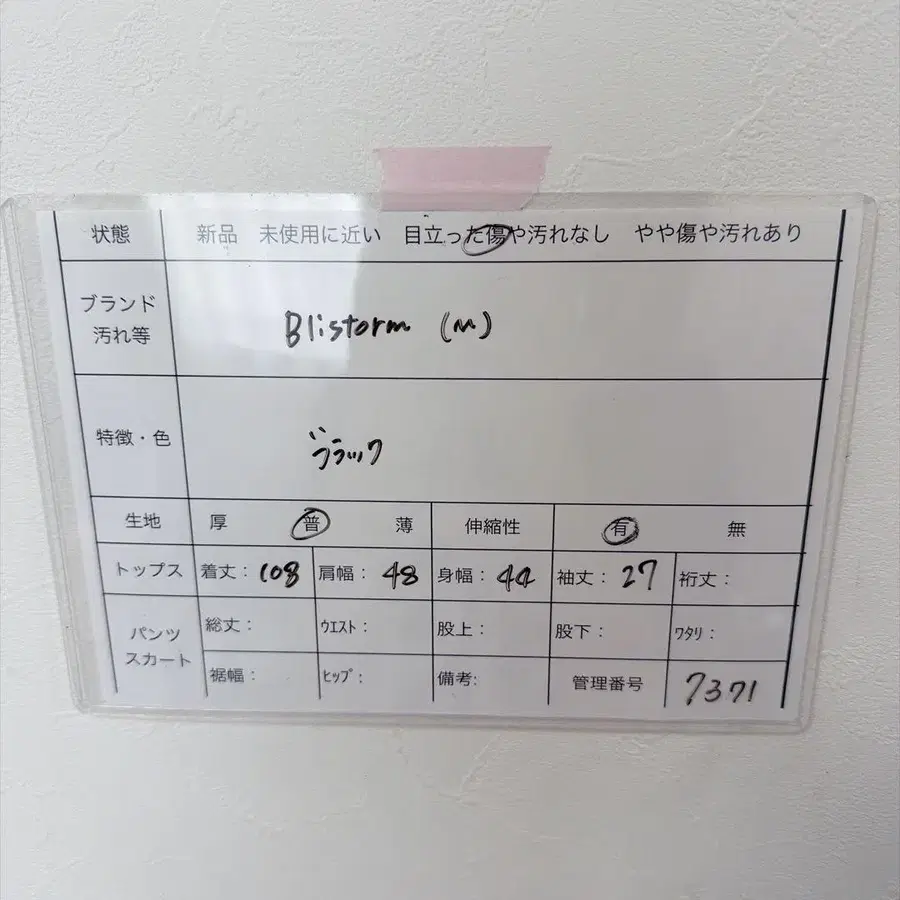 状態 新品 未使用に近い 目立った傷や汚れなし やや傷や汚れあり
ブランド
汚れ等
Blistorm (M)
特徴・色
ブラック
生地 厚 普 薄 伸縮性 有 無
トップス 着丈: 108 肩幅: 48 身幅: 44 袖丈: 27 裄丈:
パンツ
スカート
総丈: ウエスト: 股上: 股下: ワタリ:
裾幅: ヒップ: 備考: 管理番号 7371